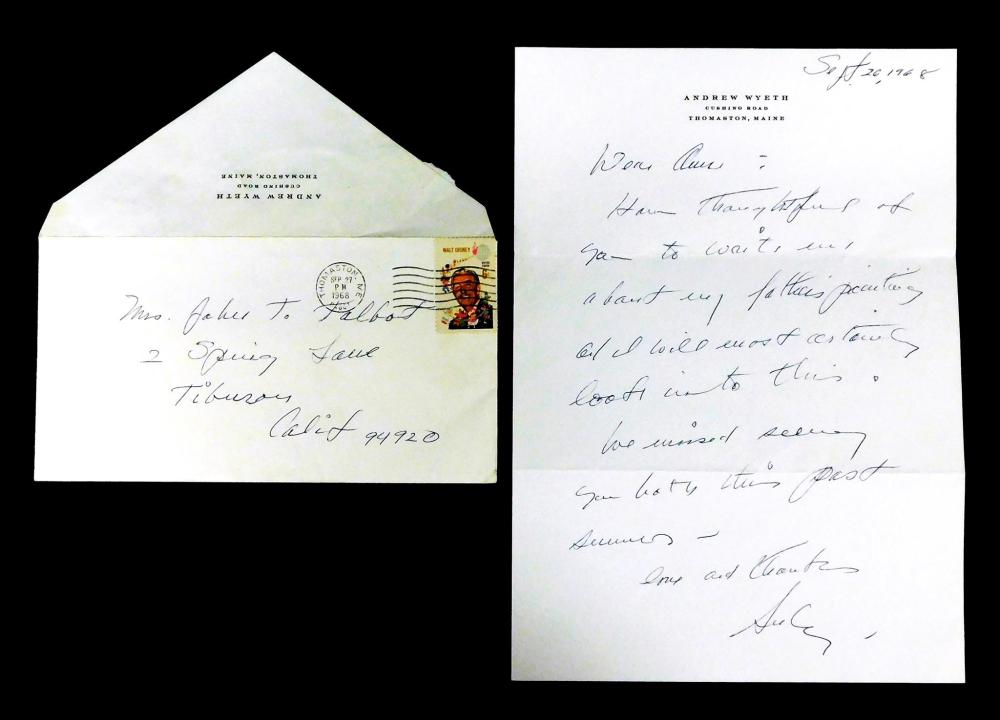 ANDREW WYETH
CUSHING ROAD
THOMASTON, MAINE
WALT DISNEY
THOMASTON, ME
SEP 27
PM
1968
Mrs. John T. Talbot
2 Spring Lane
Tiburon
Calif 94920
Sept. 26, 1968
ANDREW WYETH
CUSHING ROAD
THOMASTON, MAINE
Dear Anne :
How thoughtful of
you to write me
about my father's painting
and I will most certainly
look into this.
We missed seeing
you both this past
summer –
love and thanks